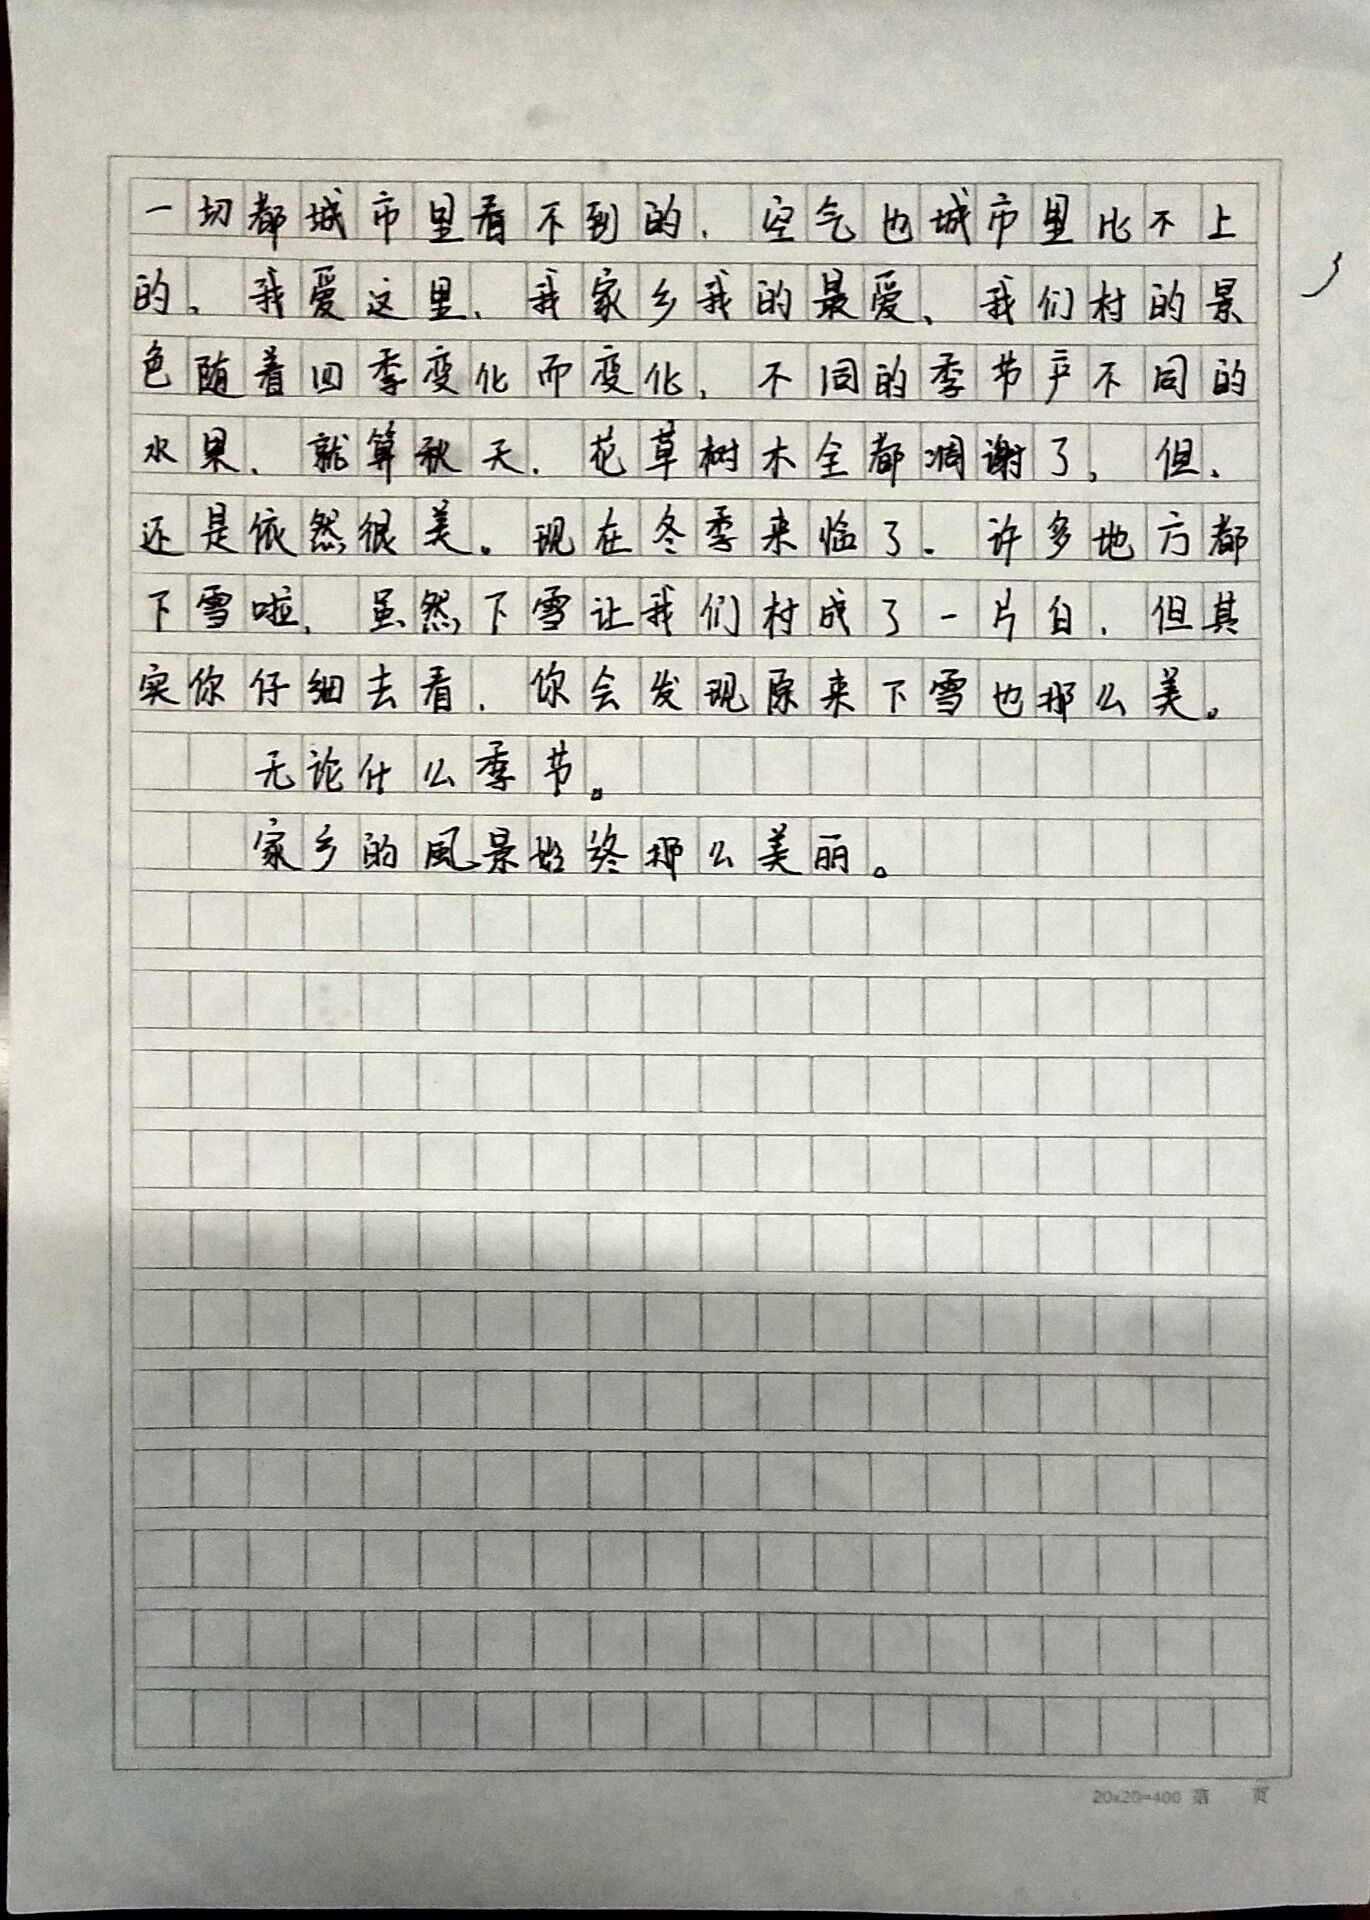 一切都城市里看不到的，空气也城市里比不上
的。我爱这里，我家乡我的最爱、我们村的景
色随着四季变化而变化，不同的季节产不同的
水果、就算秋天，花草树木全都凋谢了，但、
还是依然很美。现在冬季来临了。许多地方都
下雪啦，虽然下雪让我们村成了一片白，但其
实你仔细去看，你会发现原来下雪也那么美。
无论什么季节。
家乡的風景始终那么美丽。
20×20=400 第 页